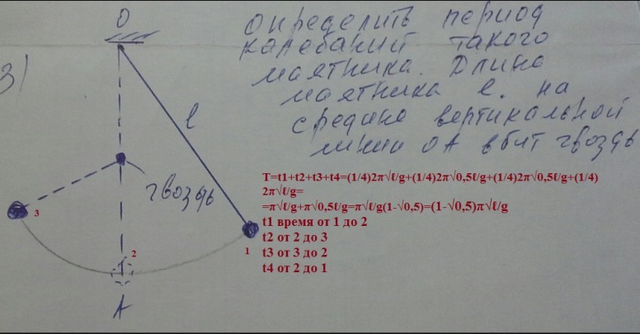 O
определить период
колебаний такого
маятника. Длина
маятника l. на
средине вертикальной
линии OA вбит гвоздь
3)
l
гвоздь
T=t1+t2+t3+t4=(1/4)2π√ℓ/g+(1/4)2π√0,5ℓ/g+(1/4)2π√0,5ℓ/g+(1/4)
2π√ℓ/g=
=π√ℓ/g+π√0,5ℓ/g=π√ℓ/g(1-√0,5)=(1-√0,5)π√ℓ/g
t1 время от 1 до 2
t2 от 2 до 3
t3 от 3 до 2
t4 от 2 до 1
3
2
1
A